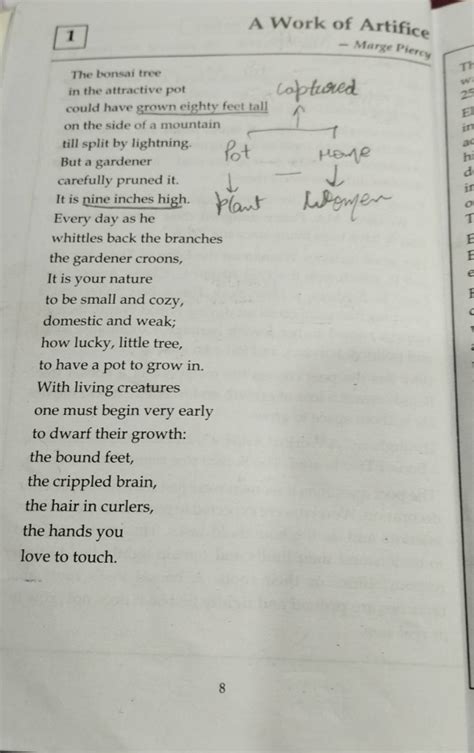 1
A Work of Artifice
— Marge Piercy
The bonsai tree
in the attractive pot
could have grown eighty feet tall
on the side of a mountain
till split by lightning.
But a gardener
carefully pruned it.
It is nine inches high.
Every day as he
whittles back the branches
the gardener croons,
It is your nature
to be small and cozy,
domestic and weak;
how lucky, little tree,
to have a pot to grow in.
With living creatures
one must begin very early
to dwarf their growth:
the bound feet,
the crippled brain,
the hair in curlers,
the hands you
love to touch.
captured
Pot
Plant
Women
8